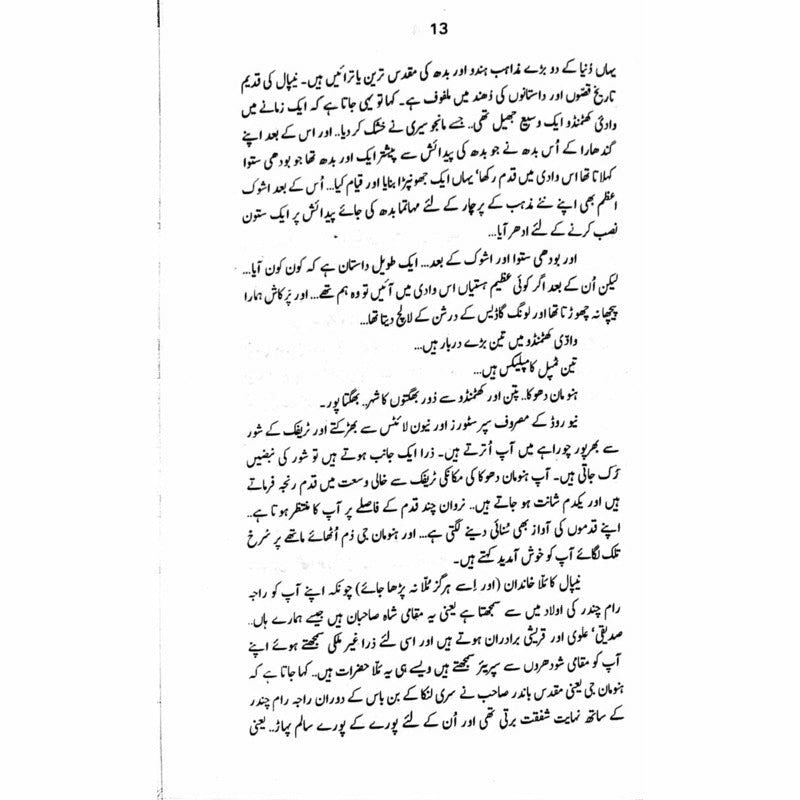 13
یہاں دُنیا کے دو بڑے مذاہب ہندو اور بدھ کی مقدس ترین یاترائیں ہیں۔ نیپال کی قدیم
تاریخ قصّوں اور داستانوں کی دُھند میں ملفوف ہے۔ کہا تو یہی جاتا ہے کہ ایک زمانے میں
وادیٔ کھٹمنڈو ایک وسیع جھیل تھی.. جسے مانجوسیری نے خشک کر دیا.. اور اس کے بعد اپنے
گندھارا کے اُس بدھ نے جو بدھ کی پیدائش سے پیشتر ایک اور بدھ تھا جو بودھی ستوا
کہلاتا تھا اس وادی میں قدم رکھا‘ یہاں ایک جھونپڑا بنایا اور قیام کیا... اُس کے بعد اشوک
اعظم بھی اپنے نئے مذہب کے پرچار کے لئے مہاتما بدھ کی جائے پیدائش پر ایک ستون
نصب کرنے کے لئے ادھر آیا...
اور بودھی ستوا اور اشوک کے بعد... ایک طویل داستان ہے کہ کون کون آیا...
لیکن اُن کے بعد اگر کوئی عظیم ہستیاں اس وادی میں آئیں تو وہ ہم تھے... اور پَرکاش ہمارا
پیچھا نہ چھوڑتا تھا اور لونگ گاڈیس کے درشن کے لالچ دیتا تھا...
وادّی کھٹمنڈو میں تین بڑے دربار ہیں...
تین ٹمپل کامپلیکس ہیں...
ہنومان دھوکا.. پتن اور کھٹمنڈو سے دُور بھگتوں کا شہر.. بھگتاپور۔
نیو روڈ کے مصروف سپر سٹورز اور نیون لائٹس سے بھڑکتے اور ٹریفک کے شور
سے بھرپور چوراہے میں آپ اُترتے ہیں۔ ذرا ایک جانب ہوتے ہیں تو شور کی نبضیں
رُک جاتی ہیں۔ آپ ہنومان دھوکا کی مکانکی ٹریفک سے خالی وسعت میں قدم رنجہ فرماتے
ہیں اور یکدم شانت ہو جاتے ہیں.. نروان چند قدم کے فاصلے پر آپ کا منتظر ہوتا ہے..
اپنے قدموں کی آواز بھی سُنائی دینے لگتی ہے... اور ہنومان جی دُم اُٹھائے ماتھے پر سُرخ
تلک لگائے آپ کو خوش آمدید کہتے ہیں۔
نیپال کا مَلّا خاندان (اور اِسے ہرگز مُلّا نہ پڑھا جائے) چونکہ اپنے آپ کو راجہ
رام چندر کی اولاد میں سے سمجھتا ہے یعنی یہ مقامی شاہ صاحبان ہیں جیسے ہمارے ہاں..
صدیقی‘ علوی اور قریشی برادران ہوتے ہیں اور اسی لئے ذرا غیر ملکی سمجھتے ہوئے اپنے
آپ کو مقامی شودھروں سے سپریئر سمجھتے ہیں ویسے ہی یہ مَلّا حضرات ہیں.. کہا جاتا ہے کہ
ہنومان جی یعنی مقدس باندر صاحب نے سری لنکا کے بن باس کے دوران راجہ رام چندر
کے ساتھ نہایت شفقت برتی تھی اور اُن کے لئے پورے کے پورے سالم پہاڑ.. یعنی